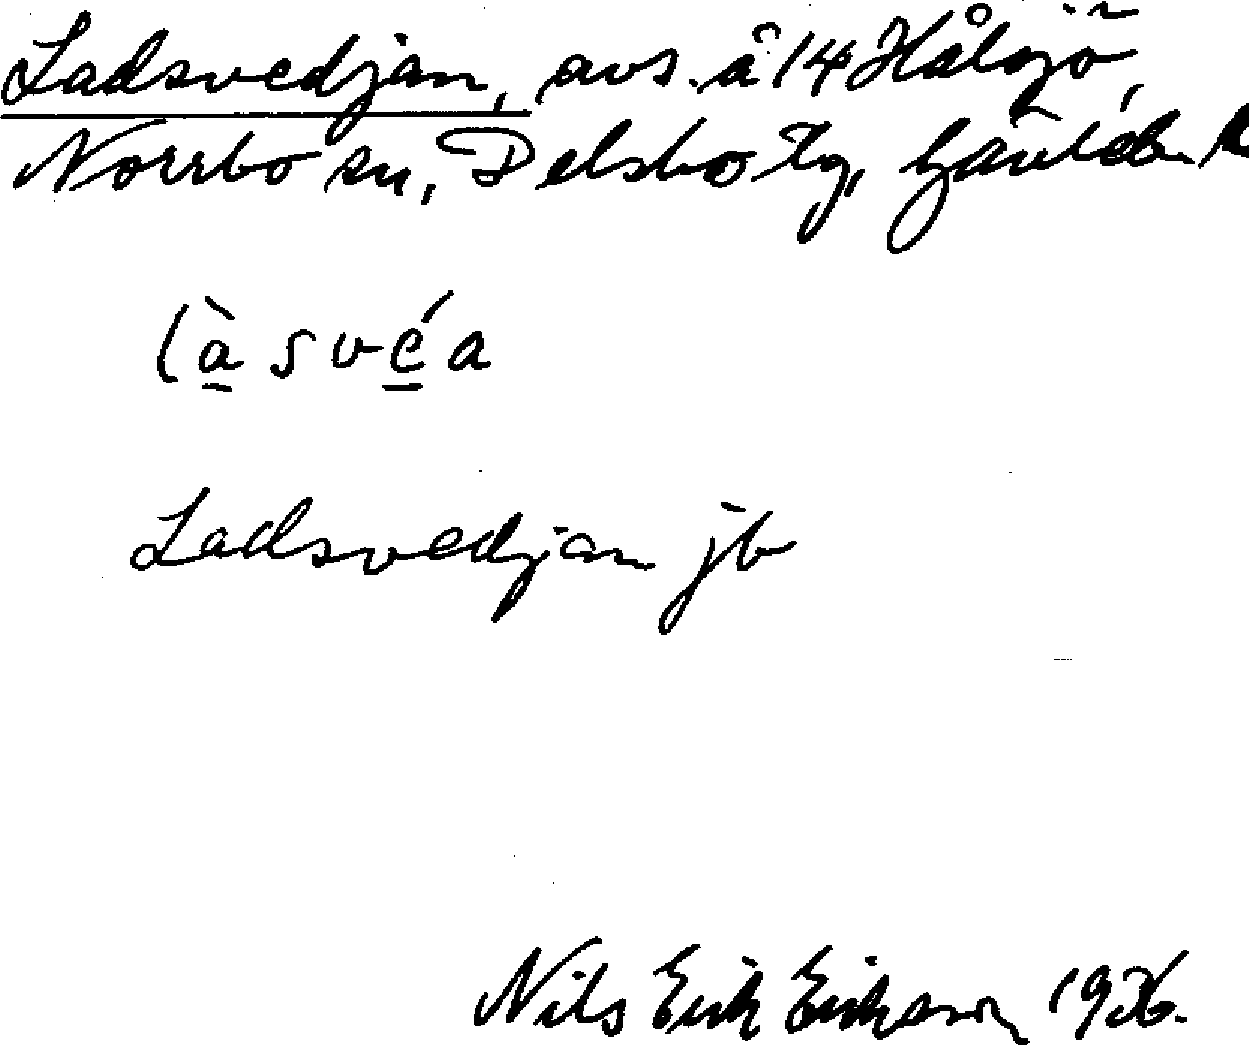 Ladsvedjan, avs. å 14 Hålsjö,
Norrbo sn, Delsbo tg, Gävleb. l
làsvéa
Ladsvedjan jb
Nils Erik Eriksson 1936.